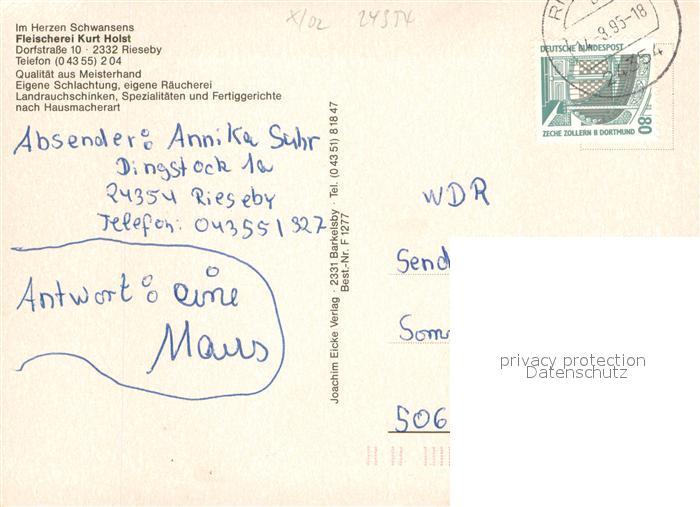 X/02 24354
Im Herzen Schwansens
Fleischerei Kurt Holst
Dorfstraße 10 · 2332 Rieseby
Telefon (0 43 55) 2 04
Qualität aus Meisterhand
Eigene Schlachtung, eigene Räucherei
Landrauchschinken, Spezialitäten und Fertiggerichte
nach Hausmacherart
Absender: Annika Suhr
Dingstock 1a
24354 Rieseby
Telefon: 04355/927
Antwort: eine
Maus
Joachim Eicke Verlag · 2331 Barkelsby · Tel. (0 43 51) 8 18 47
Best.-Nr. F 1277
-8.95-18
24354
DEUTSCHE BUNDESPOST
80
ZECHE ZOLLERN II DORTMUND
WDR
Send
Som
506
privacy protection
Datenschutz